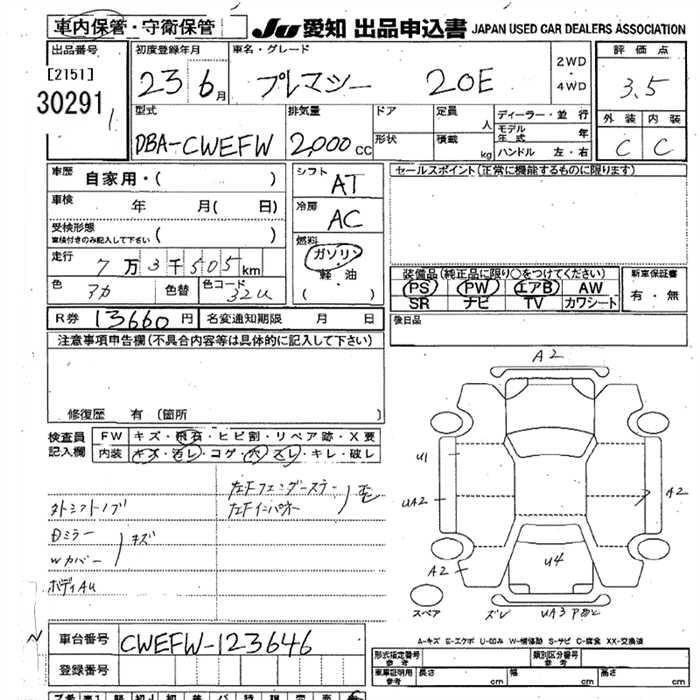 車内保管・守衛保管
JU 愛知 出品申込書 JAPAN USED CAR DEALERS ASSOCIATION
出品番号 [2151] 30291
初度登録年月 23 6月
車名・グレード プレマシー 20E
2WD・4WD
評価点 3.5
外装 内装 C C
型式 DBA-CWEFW
排気量 2,000cc
ドア 形状
定員 人 積載 kg
ディーラー・並行
モデル年式 年
ハンドル 左・右
車歴 自家用・( )
車検 年 月( 日)
受検形態 車検付きのみ記入して下さい ( )
走行 7万3千505km
色 アカ 色替 色コード 32U
シフト AT
冷房 AC
燃料 ガソリン 軽・油 ( )
セールスポイント(正常に機能するものに限ります)
装備品(純正品に限り○をつけてください)
PS PW エアB AW
SR ナビ TV カワシート
新車保証書 有・無
R券 13660円 名変通知期限 月 日
後日品
注意事項申告欄(不具合内容等は具体的に記入して下さい)
修復歴 有(箇所 )
検査員記入欄
FW キズ・飛石・ヒビ割・リペア跡・X要
内装 キズ・汚レ・コゲ・穴・スレ・キレ・破レ
左Fフェンダーステー
左Fインパネー
外シフトノブ
Dミラー
Wカバー
キズ
ボディAU
A2
U1
UA2
A2
A2
U4
スペア ズレ UA3
車台番号 CWEFW-123646
登録番号
A-キズ E-エクボ U-凹み W-補修跡 S-サビ C-腐食 XX-交換済
形式指定番号 参考 類別区分番号 参考
車庫証明用 参考 長さ cm 幅 cm 高さ cm